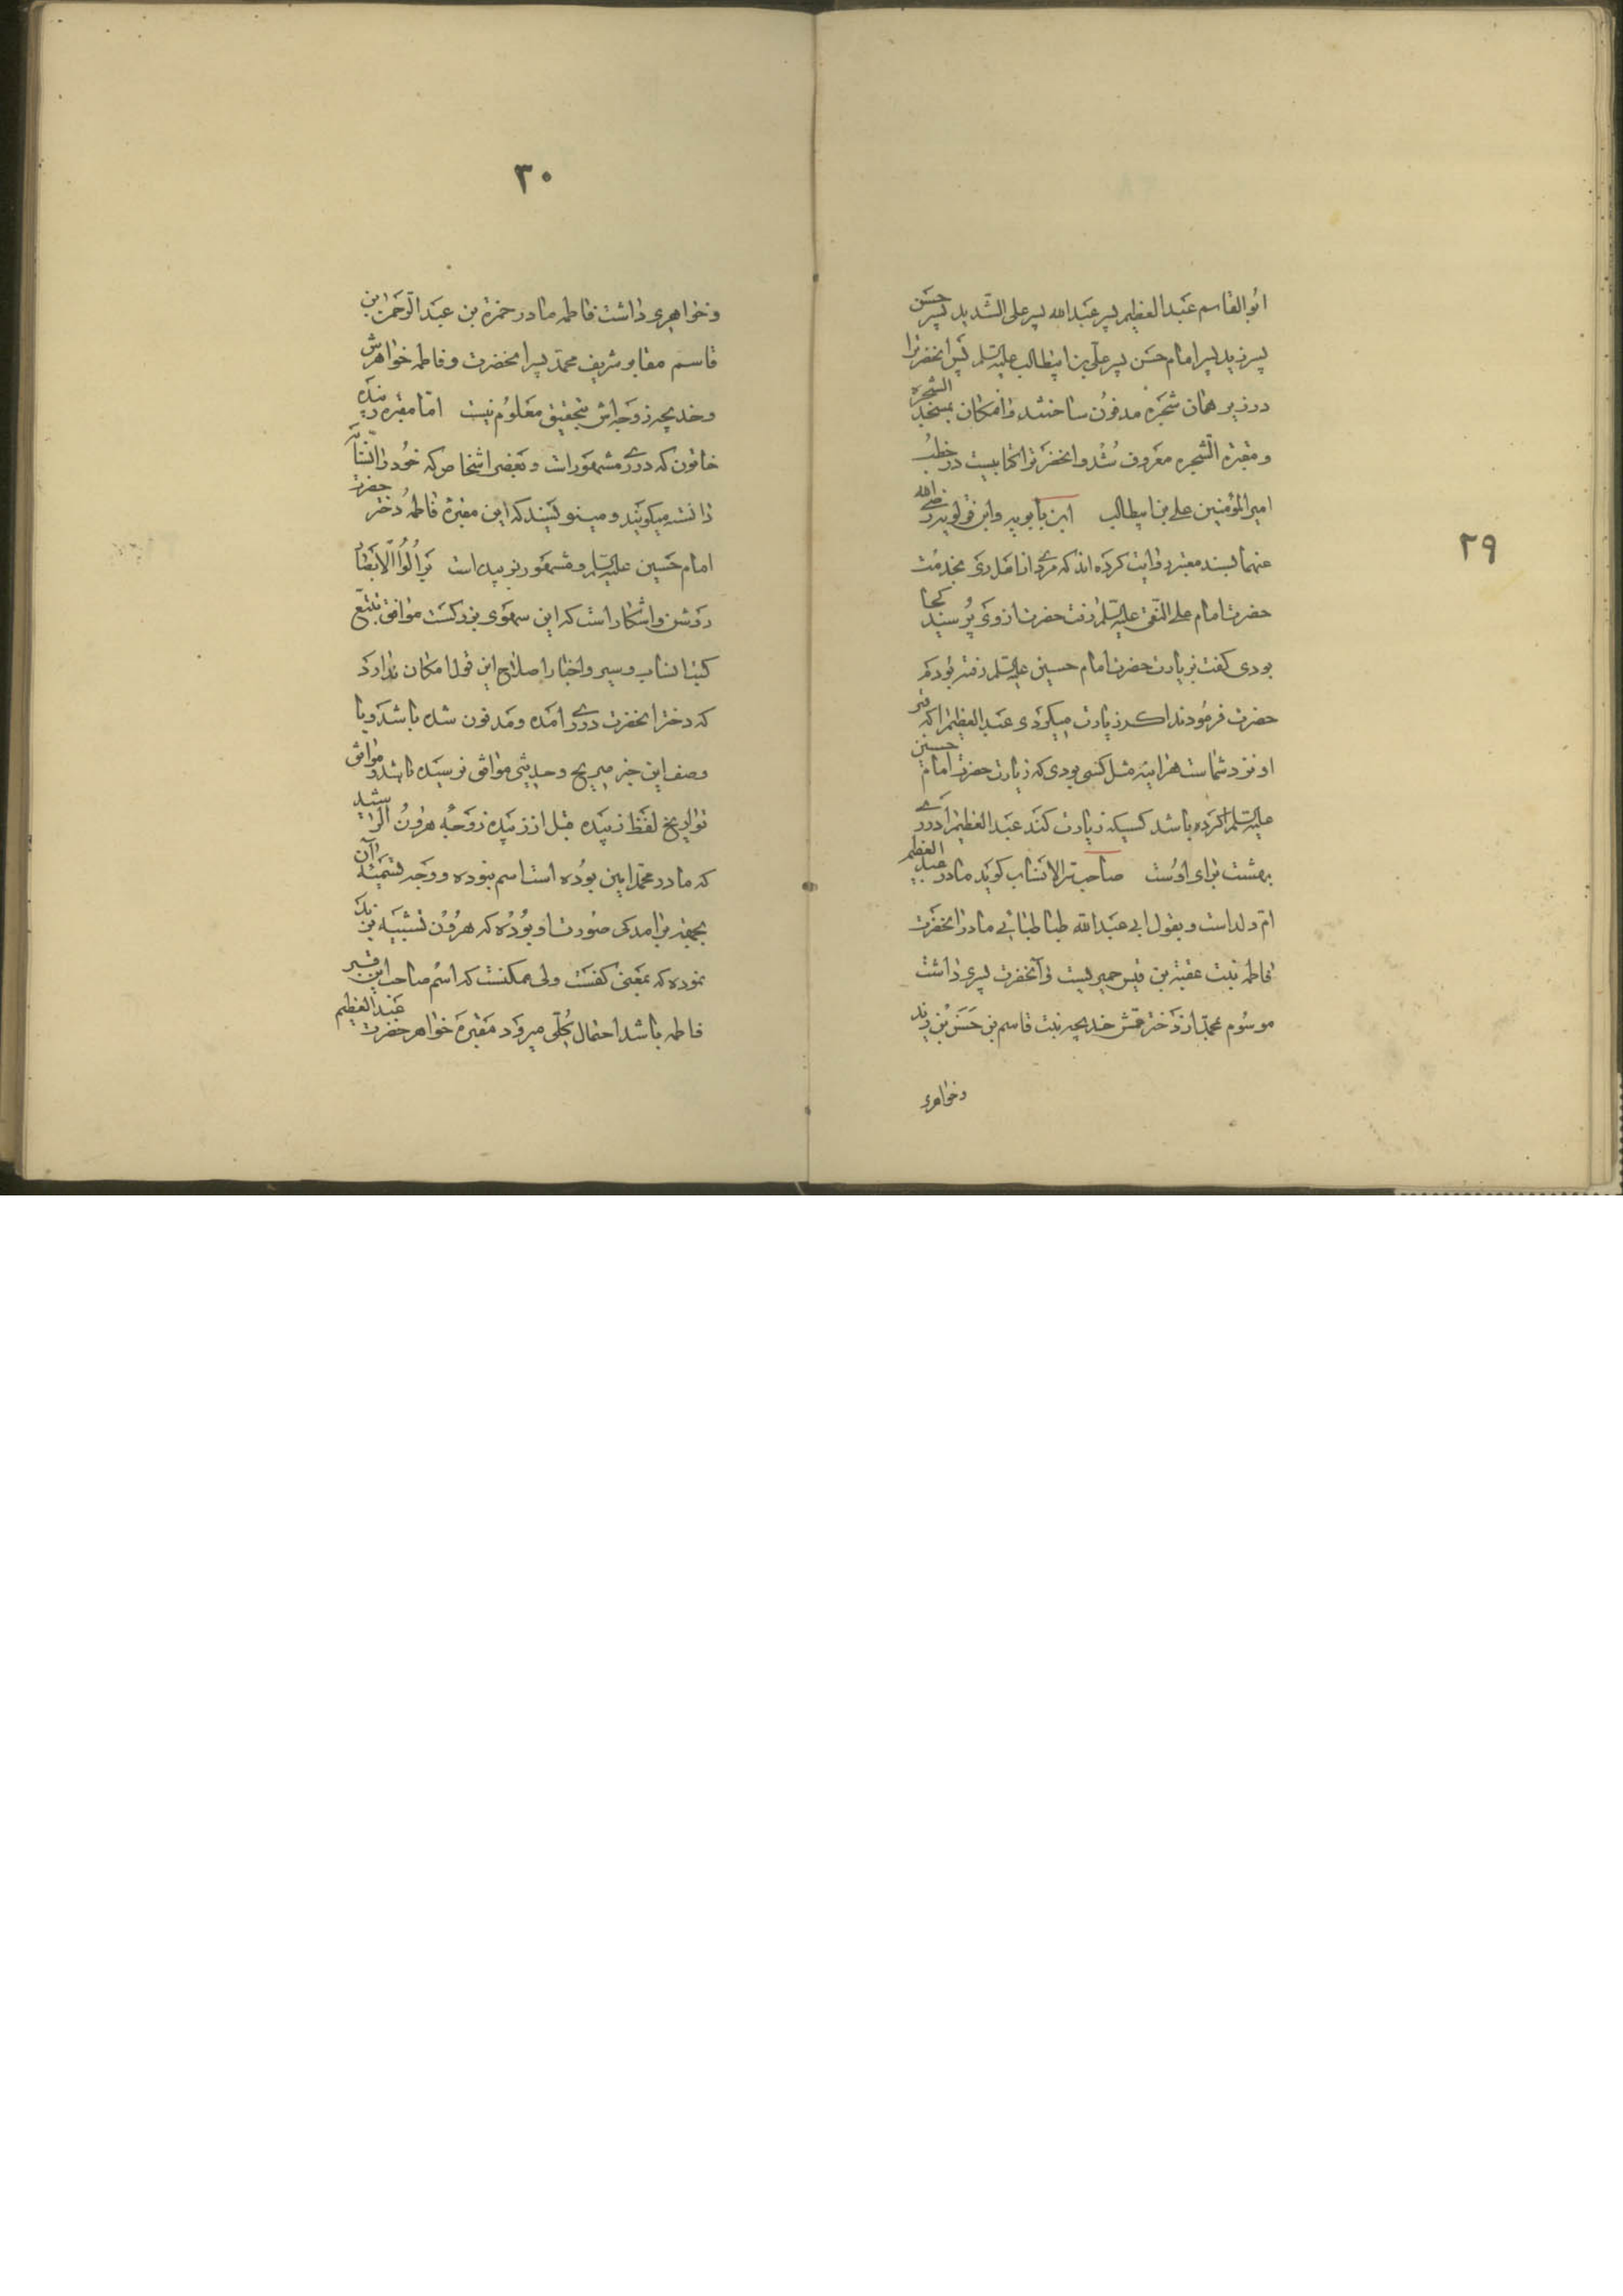 ۲۹
ابوالقاسم عبدالعظیم پسر عبدالله پسر علی الشدید پسر حسن
پسر زید پسر امام حسن پسر علی بن ابیطالب علیه السلم پس آنحضرترا
در زیر همان شجره مدفون ساختند وانمکان بمسجد الشجره
و مقبرة الشجره معروف شد و آنحضرترا کتابیست در خطب
امیرالمؤمنین علی بن ابیطالب ابن بابویه وابن قولویه رضی الله
عنهما بسند معتبر روایت کرده اند که مردی از اهل ری بخدمت
حضرت امام علی النقی علیه السلم رفت حضرت از وی پرسید کجا
بودی گفت بزیارت حضرت امام حسین علیه السلم رفته بودم
حضرت فرمودند اگر زیارت میکردی عبدالعظیم را که قبر
او نزد شماست هراینه مثل کسی بودی که زیارت حضرت امام حسین
علیه السلم را کرده باشد کسیکه زیارت کند عبدالعظیم را در ری
بهشت برای اوست صاحب سر الانساب گوید مادر عبد العظیم
ام ولد است و بقول ابی عبدالله طباطبائی مادر آنحضرت
فاطمه بنت عقبة بن قیس حمیریست و آنحضرت پسری داشت
موسوم بمحمد از دختر عمش خدیجه بنت قاسم بن حسن بن زید
وخواهری
۳۰
وخواهری داشت فاطمه مادر حمزة بن عبدالرحمن بن
قاسم مقابر شریف محمد پسر آنحضرت و فاطمه خواهرش
و خدیجه زوجه اش بتحقیق معلوم نیست اما مقبره زبیده
خاتون که در ری مشهور است و بعضی اشخاص که خود را نسابه
دانسته میگویند و مینویسند که این مقبرهٔ فاطمه دختر حضرت
امام حسین علیه السلم و مشهور بزبیده است بر اولوا الابصار
روشن و اشکار است که این سهوی بزرگست موافق تتبع
کتب انساب و سیر و اخبار اصلاح این قول امکان ندارد
که دختر آنحضرت در ری امده و مدفون شده باشد و با
وصف این خبر صریح و حدیثی موافق نرسیده باشد و موافق
تواریخ لفظ زبیده قبل از زبیده زوجهٔ هرون الرشید
که مادر محمد امین بوده است اسم نبوده و وجه تسمیهٔ آن
بجهة برامدگی صورت او بوده که هرون تشبیه بزبد
نموده که بمعنی کفست ولی ممکنست که اسم صاحب این قبر
فاطمه باشد احتمال کلی میرود مقبره خواهر حضرت عبدالعظیم